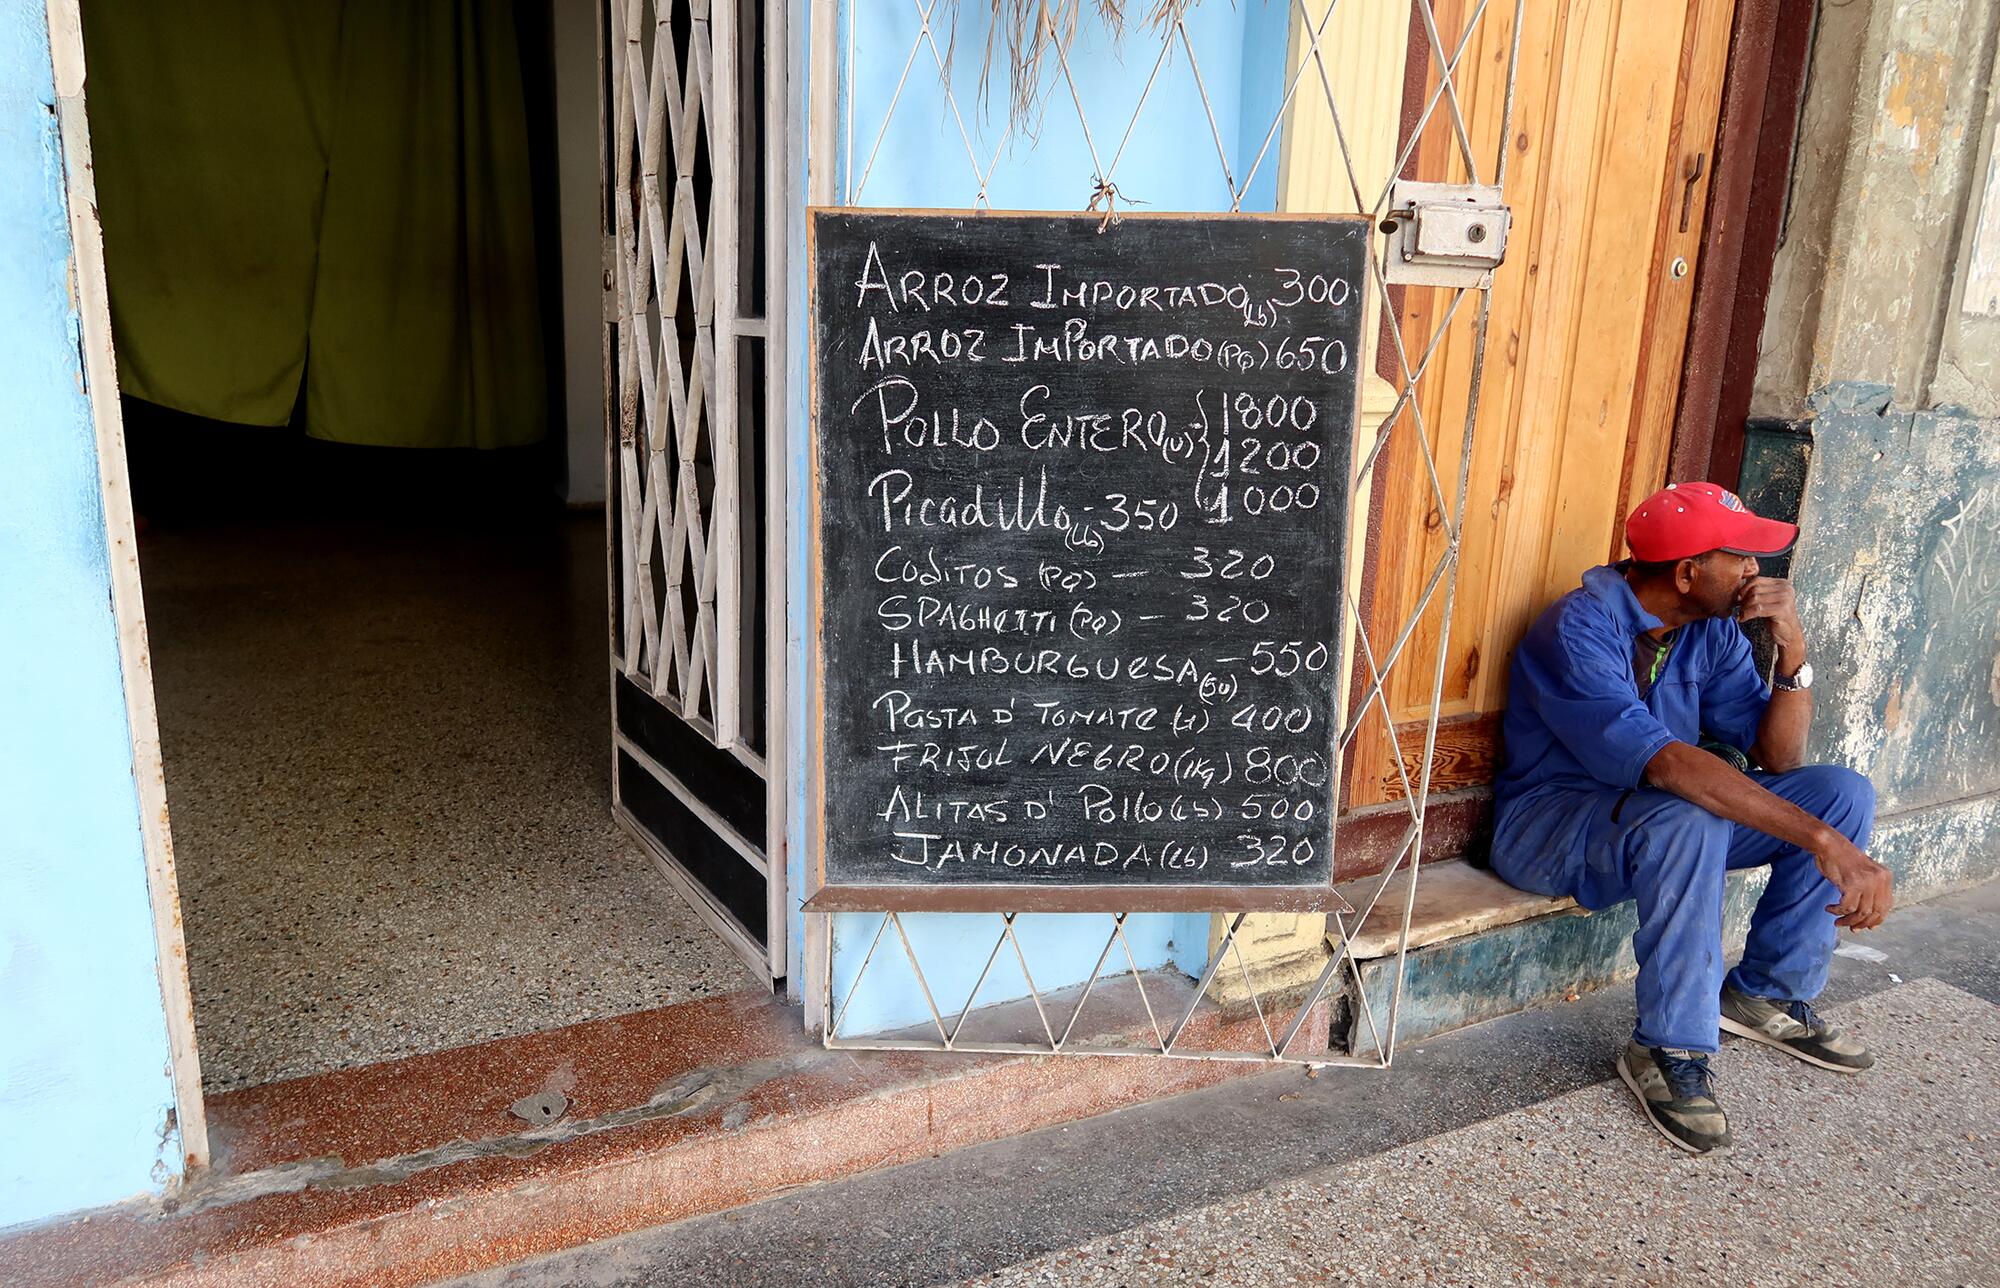 ARROZ IMPORTADO (Lb) 300
ARROZ IMPORTADO (PQ) 650
POLLO ENTERO (U) - { 1800
1200
1000
Picadillo (Lb) - 350
CODITOS (PQ) — 320
SPAGHETTI (PQ) — 320
HAMBURGUESA (5U) - 550
PASTA D' TOMATE () 400
FRIJOL NEGRO (1Kg) 800
ALITAS D' Pollo (Lb) 500
JAMONADA (Lb) 320